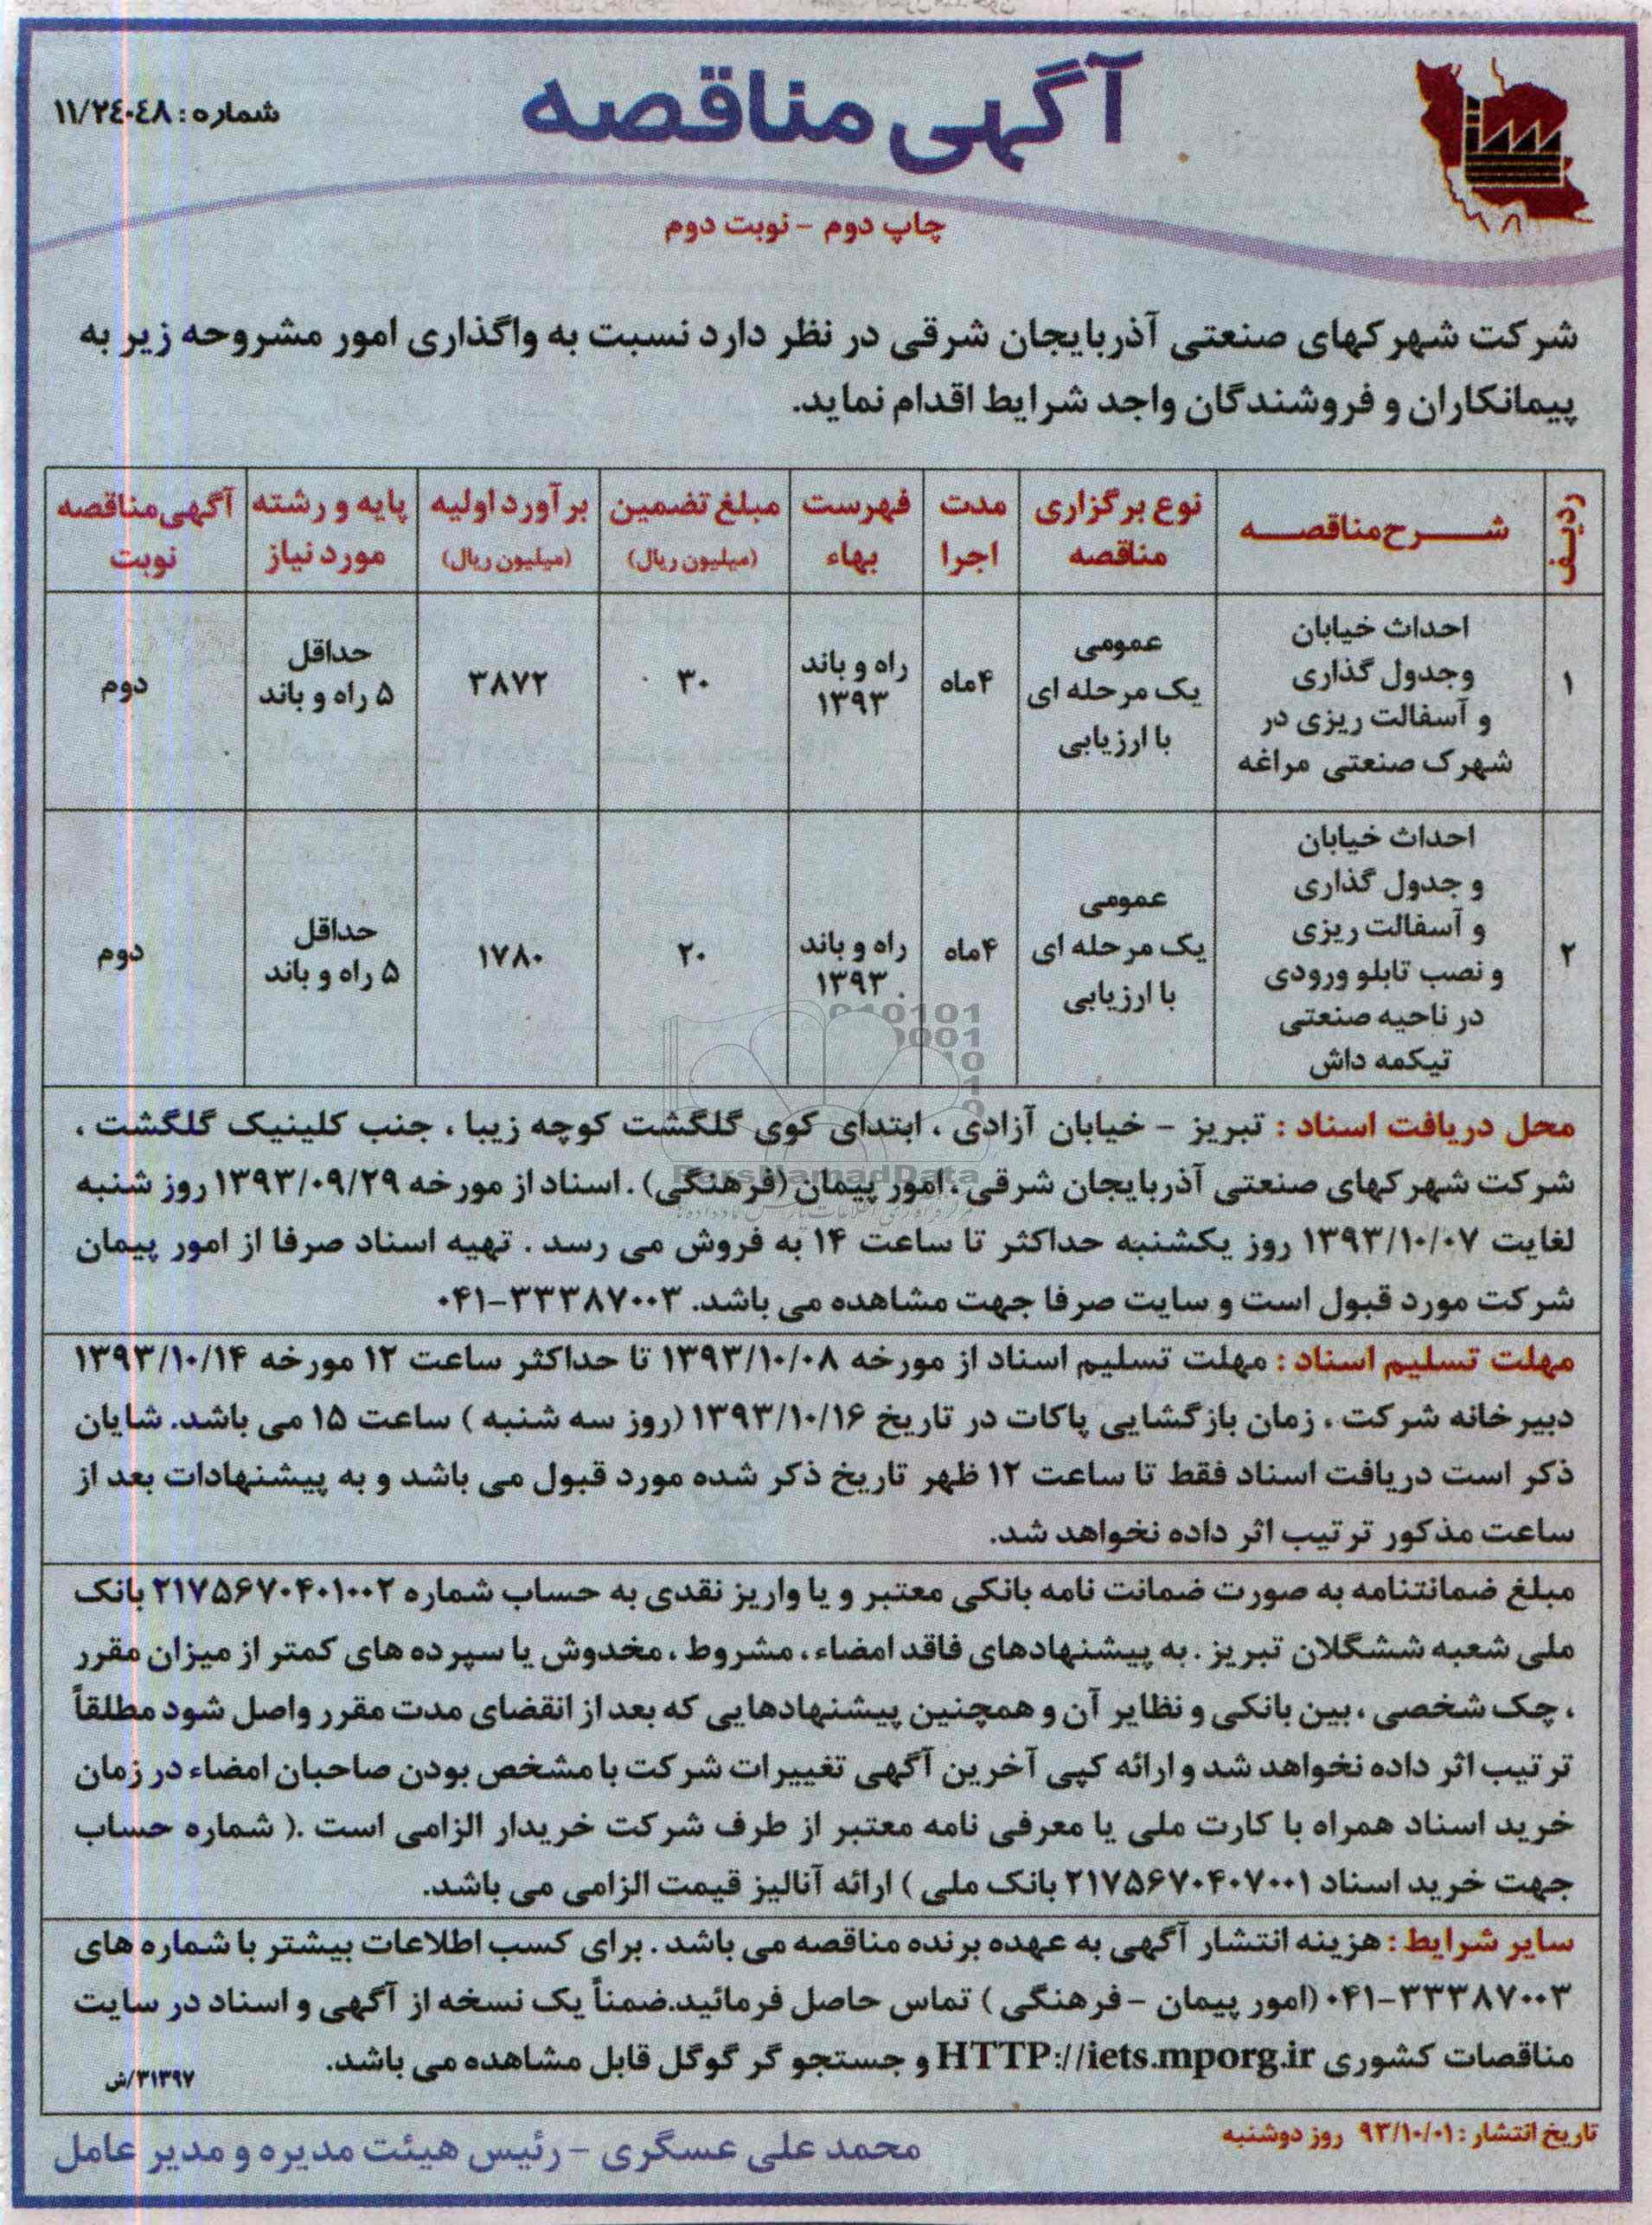 آگهی مناقصه
شماره: ۱۱/۲٤۰٤۸
چاپ دوم - نوبت دوم
شرکت شهرکهای صنعتی آذربایجان شرقی در نظر دارد نسبت به واگذاری امور مشروحه زیر به
پیمانکاران و فروشندگان واجد شرایط اقدام نماید.
ردیف | شرح مناقصه | نوع برگزاری مناقصه | مدت اجرا | فهرست بهاء | مبلغ تضمین (میلیون ریال) | برآورد اولیه (میلیون ریال) | پایه و رشته مورد نیاز | آگهی مناقصه نوبت
۱ | احداث خیابان وجدول گذاری و آسفالت ریزی در شهرک صنعتی مراغه | عمومی یک مرحله ای با ارزیابی | ۴ماه | راه و باند ۱۳۹۳ | ۳۰ | ۳۸۷۲ | حداقل ۵ راه و باند | دوم
۲ | احداث خیابان و جدول گذاری و آسفالت ریزی و نصب تابلو ورودی در ناحیه صنعتی تیکمه داش | عمومی یک مرحله ای با ارزیابی | ۴ماه | راه و باند ۱۳۹۳ | ۲۰ | ۱۷۸۰ | حداقل ۵ راه و باند | دوم
محل دریافت اسناد : تبریز - خیابان آزادی ، ابتدای کوی گلگشت کوچه زیبا ، جنب کلینیک گلگشت ،
شرکت شهرکهای صنعتی آذربایجان شرقی ، امور پیمان (فرهنگی) . اسناد از مورخه ۱۳۹۳/۰۹/۲۹ روز شنبه
لغایت ۱۳۹۳/۱۰/۰۷ روز یکشنبه حداکثر تا ساعت ۱۴ به فروش می رسد . تهیه اسناد صرفا از امور پیمان
شرکت مورد قبول است و سایت صرفا جهت مشاهده می باشد. ۳۳۳۸۷۰۰۳-۰۴۱
مهلت تسلیم اسناد : مهلت تسلیم اسناد از مورخه ۱۳۹۳/۱۰/۰۸ تا حداکثر ساعت ۱۲ مورخه ۱۳۹۳/۱۰/۱۴
دبیرخانه شرکت ، زمان بازگشایی پاکات در تاریخ ۱۳۹۳/۱۰/۱۶ (روز سه شنبه ) ساعت ۱۵ می باشد. شایان
ذکر است دریافت اسناد فقط تا ساعت ۱۲ ظهر تاریخ ذکر شده مورد قبول می باشد و به پیشنهادات بعد از
ساعت مذکور ترتیب اثر داده نخواهد شد.
مبلغ ضمانتنامه به صورت ضمانت نامه بانکی معتبر و یا واریز نقدی به حساب شماره ۲۱۷۵۶۷۰۴۰۱۰۰۲ بانک
ملی شعبه ششگلان تبریز . به پیشنهادهای فاقد امضاء ، مشروط ، مخدوش یا سپرده های کمتر از میزان مقرر
، چک شخصی ، بین بانکی و نظایر آن و همچنین پیشنهادهایی که بعد از انقضای مدت مقرر واصل شود مطلقاً
ترتیب اثر داده نخواهد شد و ارائه کپی آخرین آگهی تغییرات شرکت با مشخص بودن صاحبان امضاء در زمان
خرید اسناد همراه با کارت ملی یا معرفی نامه معتبر از طرف شرکت خریدار الزامی است .( شماره حساب
جهت خرید اسناد ۲۱۷۵۶۷۰۴۰۷۰۰۱ بانک ملی ) ارائه آنالیز قیمت الزامی می باشد.
سایر شرایط : هزینه انتشار آگهی به عهده برنده مناقصه می باشد . برای کسب اطلاعات بیشتر با شماره های
۳۳۳۸۷۰۰۳-۰۴۱ (امور پیمان - فرهنگی ) تماس حاصل فرمائید.ضمناً یک نسخه از آگهی و اسناد در سایت
مناقصات کشوری HTTP://iets.mporg.ir و جستجو گر گوگل قابل مشاهده می باشد.
۳۱۳۹۷/ش
تاریخ انتشار : ۹۳/۱۰/۰۱ روز دوشنبه
محمد علی عسگری - رئیس هیئت مدیره و مدیر عامل
ParsNamadData